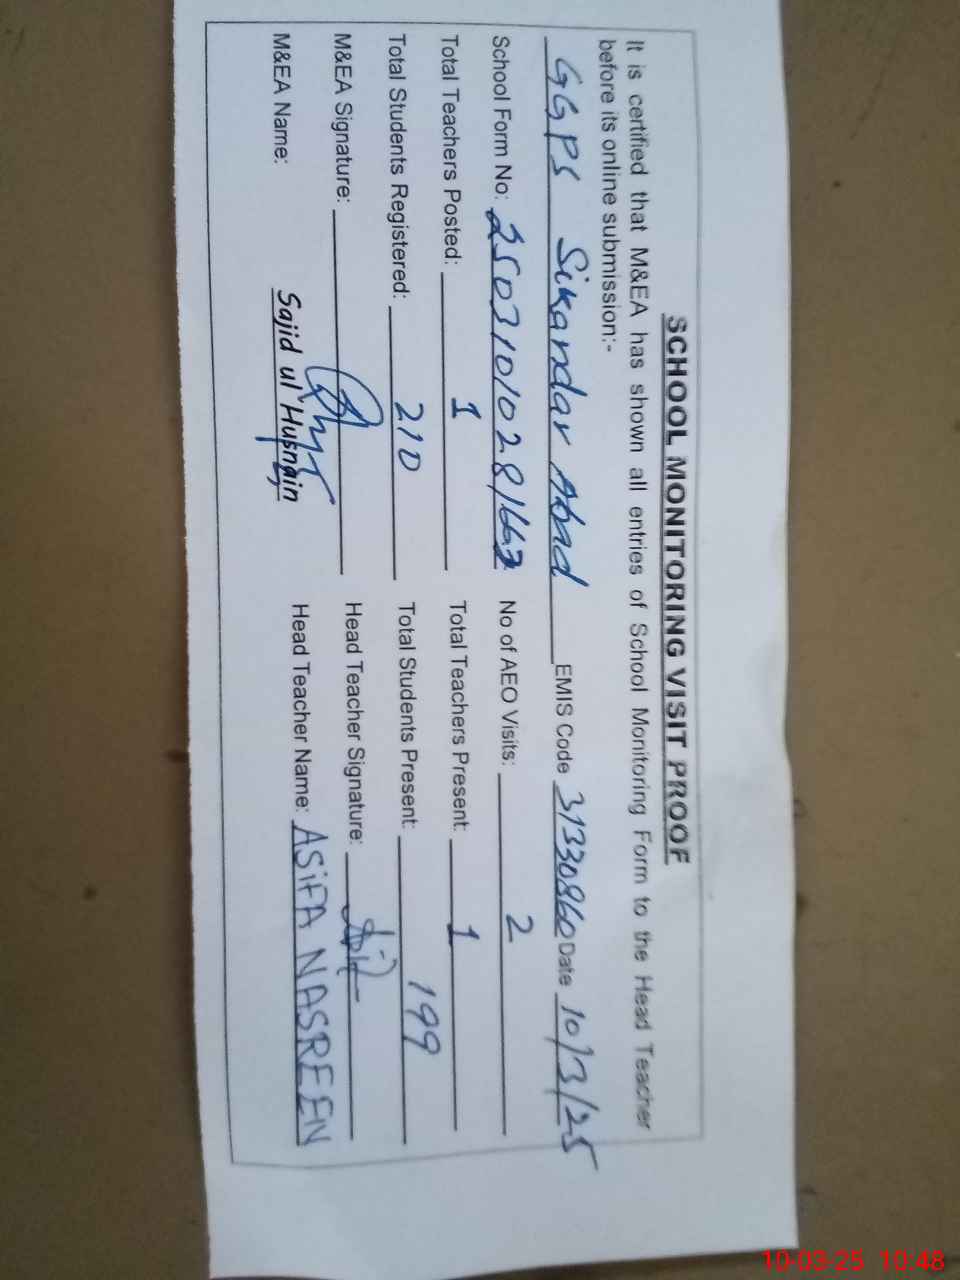 SCHOOL MONITORING VISIT PROOF
It is certified that M&EA has shown all entries of School Monitoring Form to the Head Teacher
before its online submission:-
GGPS Sikandar Abad EMIS Code 31330860 Date 10/3/25
School Form No: 2503101028/663 No of AEO Visits: 2
Total Teachers Posted: 1 Total Teachers Present: 1
Total Students Registered: 210 Total Students Present: 199
M&EA Signature: Head Teacher Signature:
M&EA Name: Sajid ul Husnain Head Teacher Name: ASiFA NASREEN
10-03-25 10:48